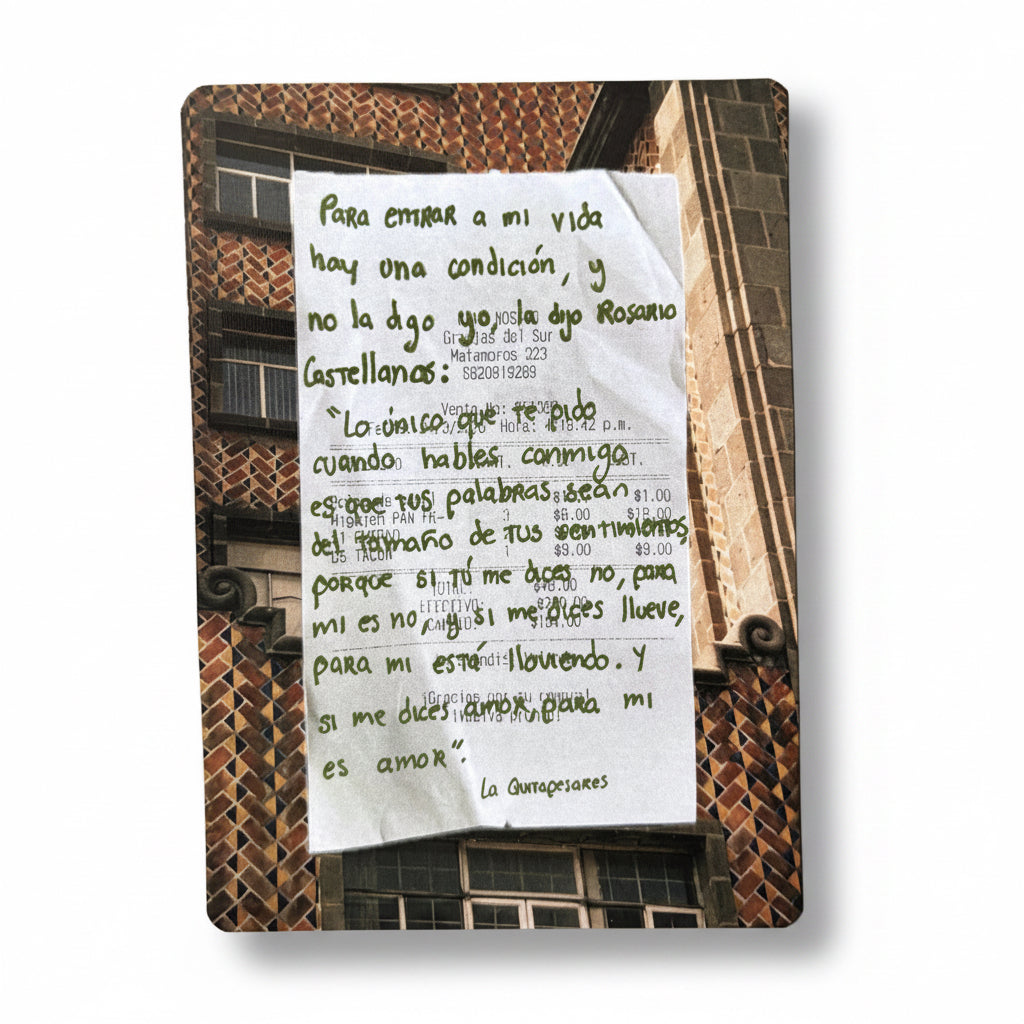 Para entrar a mi vida
hay una condición, y
no la digo yo, la dijo Rosario
Castellanos:
"Lo único que te pido
cuando hables conmigo
es que tus palabras sean
del tamaño de tus sentimientos,
porque si tú me dices no, para
mi es no, y si me dices llueve,
para mi está lloviendo. Y
si me dices amor, para mi
es amor".
La Quitapesares
del Sur
Matamoros 223
S820819289
Hora: p.m.
$1.00
PAN $18.00
TACON 1 $9.00 $9.00
TOTAL:
EFECTIVO:
¡Gracias por su compra!